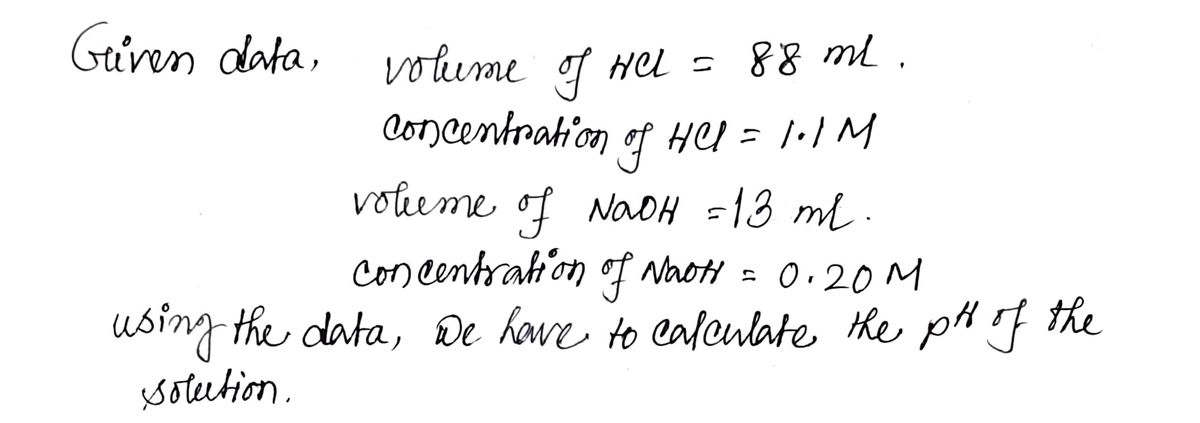 Given data, volume of HCl = 88 ml.
concentration of HCl = 1.1 M
volume of NaOH = 13 ml.
concentration of NaOH = 0.20 M
using the data, we have to calculate the pH of the
solution.